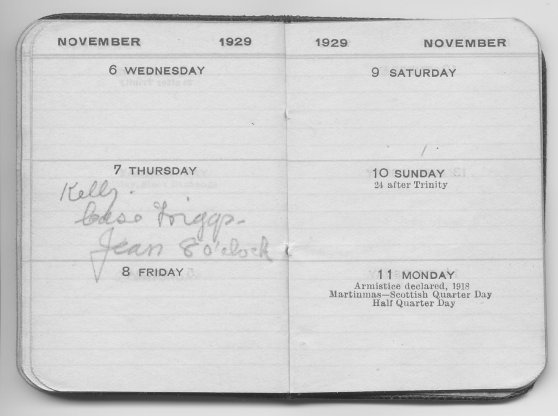 NOVEMBER 1929
6 WEDNESDAY
7 THURSDAY
Kelly.
Jean 8 o'clock
8 FRIDAY
1929 NOVEMBER
9 SATURDAY
10 SUNDAY
24 after Trinity
11 MONDAY
Armistice declared, 1918
Martinmas—Scottish Quarter Day
Half Quarter Day